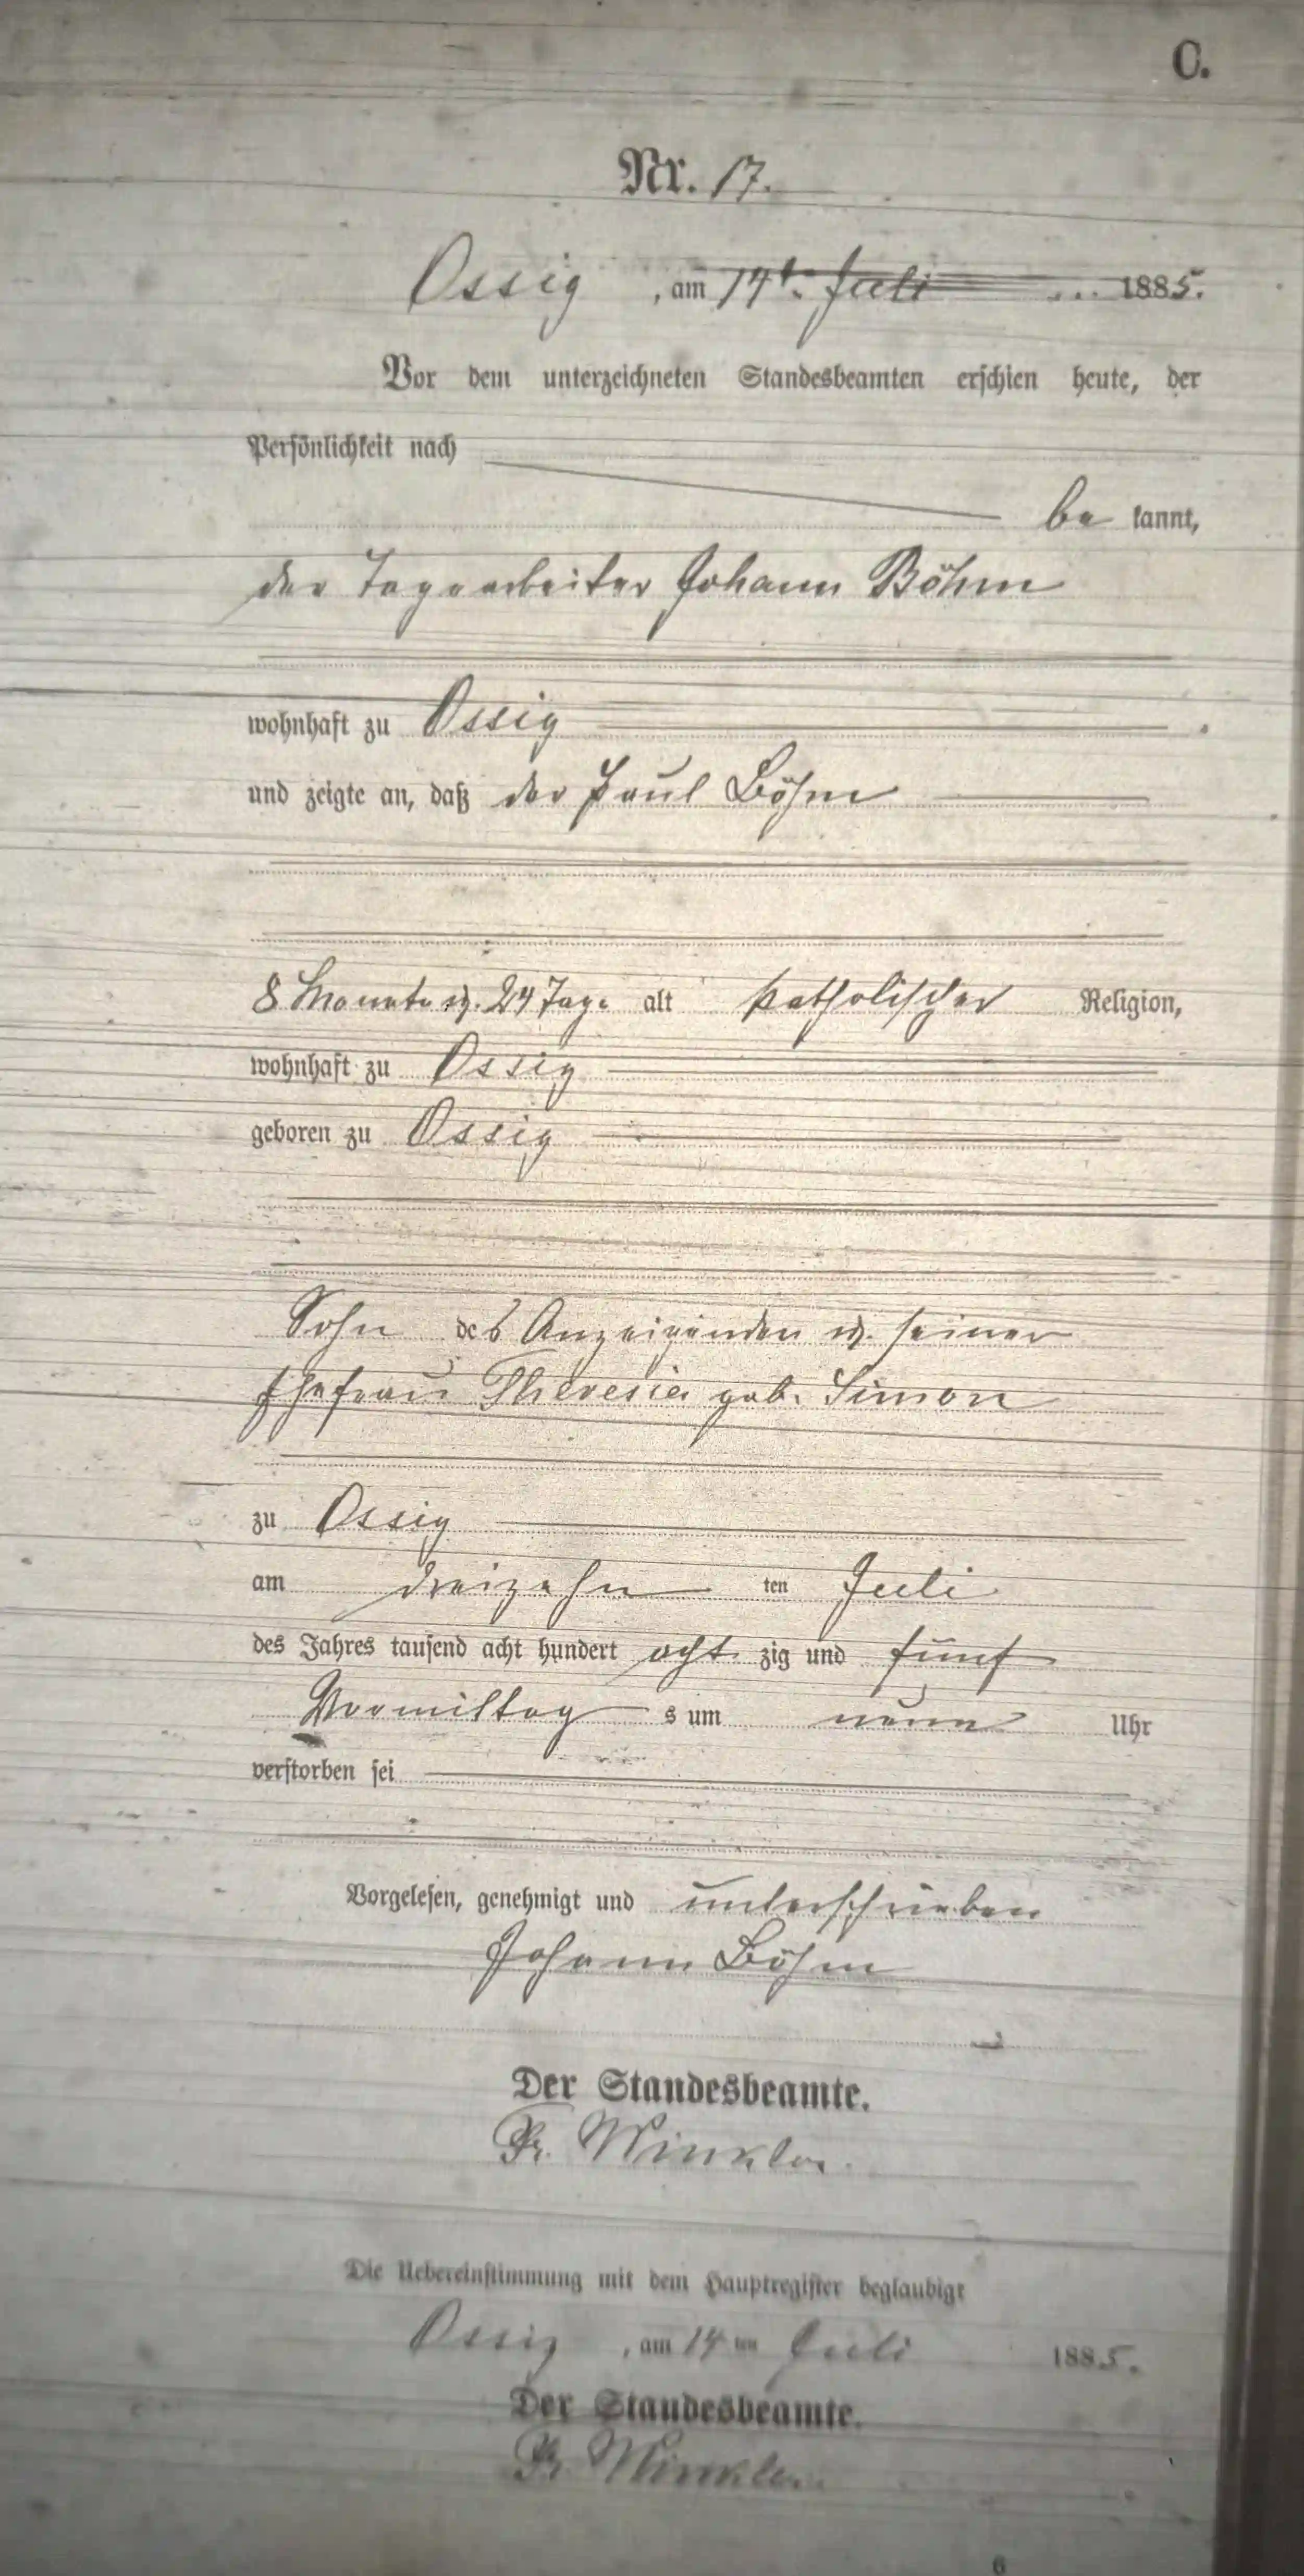 C.
Nr. 17.
Ossig, am 14t. Juli 1885.
Vor dem unterzeichneten Standesbeamten erschien heute, der
Persönlichkeit nach
be kannt,
der Tagearbeiter Johann Böhm
wohnhaft zu Ossig
und zeigte an, daß der Paul Böhm
8 Monate u. 24 Tage alt katholischer Religion,
wohnhaft zu Ossig
geboren zu Ossig
Sohn des Anzeigenden u. seiner
Ehefrau Theresia geb. Simon
zu Ossig
am dreizehn ten Juli
des Jahres tausend acht hundert acht zig und fünf
Vormittag s um neun Uhr
verstorben sei
Vorgelesen, genehmigt und unterschrieben
Johann Böhm
Der Standesbeamte.
Fr. Winkler.
Die Uebereinstimmung mit dem Hauptregister beglaubigt
Ossig, am 14 ten Juli 1885.
Der Standesbeamte.
Fr. Winkler.
6